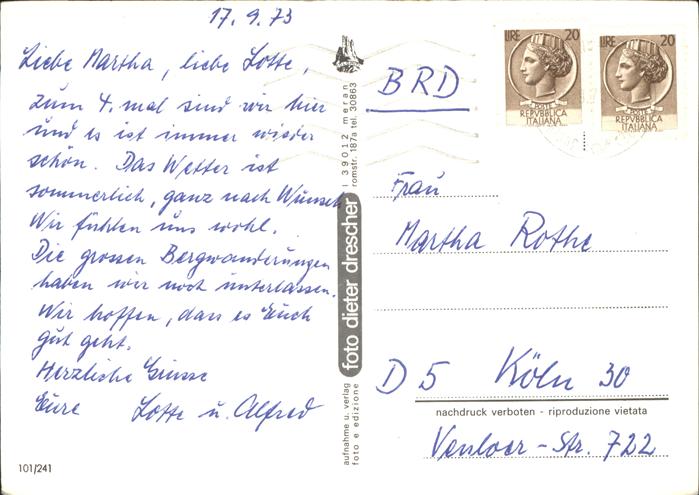 17.9.73
Liebe Martha, liebe Lotte,
zum 4. mal sind wir hier
und es ist immer wieder
schön. Das Wetter ist
sommerlich, ganz nach Wunsch
Wir fühlen uns wohl.
Die grossen Bergwanderungen
haben wir noch unterlassen.
Wir hoffen, dass es Euch
gut geht.
Herzliche Grüsse
Eure Lotte u. Alfred
101/241
I 39012 meran
romstr. 187a tel. 30863
foto dieter drescher
aufnahme u. verlag
foto e edizione
LIRE 20
POSTE
REPVBBLICA
ITALIANA
LIRE 20
POSTE
REPVBBLICA
ITALIANA
BRD
Frau
Martha Rothe
D 5 Köln 30
nachdruck verboten - riproduzione vietata
Venloer-Str. 722